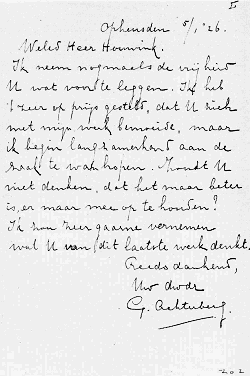 I
Opheusden 5/1 '26.
Weled. Heer Houwink.
Ik neem nogmaals de vrijheid
U wat voor te leggen. Ik heb
't zeer op prijs gesteld, dat U zich
met mijn werk bemoeide, maar
ik begin langzamerhand aan de
zaak te wanhopen. Zoudt U
niet denken, dat het maar beter
is, er maar mee op te houden?
Ik zou zeer gaarne vernemen
wat U van dit laatste werk denkt.
Reeds dankend,
Uw dwdr
G. Achterberg.
202